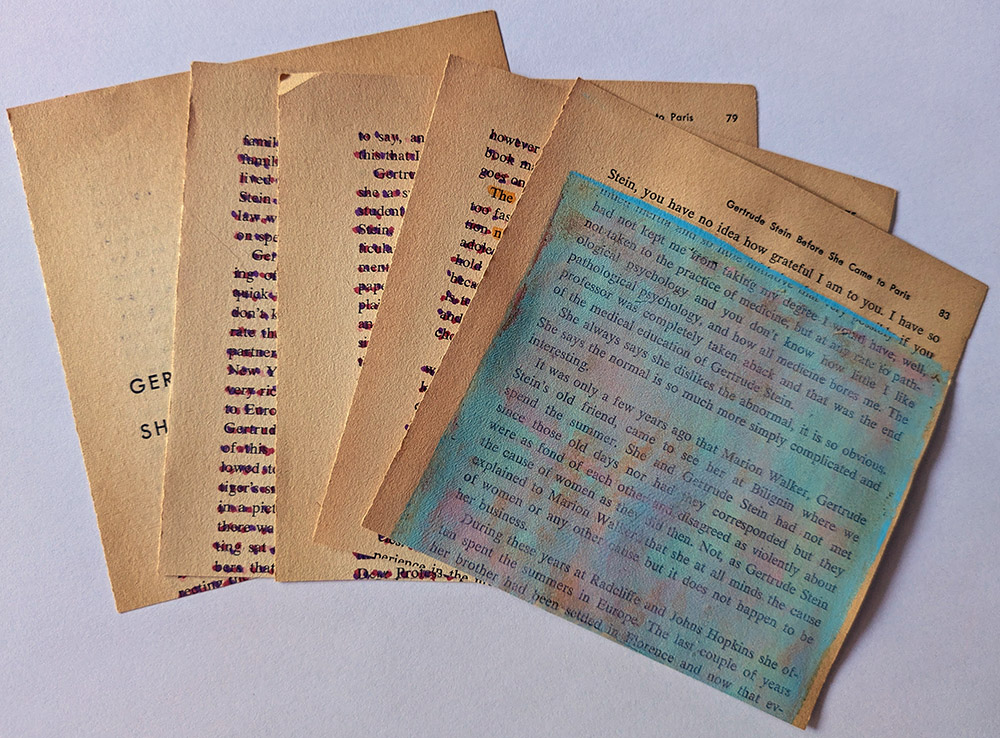 GER
SH
famil
famil
lived
Stein
law w
on spe
Ger
ing of
quick
don't k
rate th
partner
New Y
very ri
to Euro
Gertrud
of this
lowed st
tiger's s
in a pict
there wa
ting sat
born that
to say, an
this that I
Gertr
she a s
student
Stein
ticula
ment
pape
plai
an
perience in the
Dear Profes
however
book m
goes on
The
too fas
tion n
adole
hold
beca
to Paris 79
Gertrude Stein Before She Came to Paris 83
Stein, you have no idea how grateful I am to you. I have so
much inertia and so little initiative that very possibly if you
had not kept me from taking my degree I would have, well,
not taken to the practice of medicine, but at any rate to path-
ological psychology and you don't know how little I like
pathological psychology, and how all medicine bores me. The
professor was completely taken aback and that was the end
of the medical education of Gertrude Stein.
She always says she dislikes the abnormal, it is so obvious.
She says the normal is so much more simply complicated and
interesting.
It was only a few years ago that Marion Walker, Gertrude
Stein's old friend, came to see her at Bilignin where we
spend the summer. She and Gertrude Stein had not met
since those old days nor had they corresponded but they
were as fond of each other and disagreed as violently about
the cause of women as they did then. Not, as Gertrude Stein
explained to Marion Walker, that she at all minds the cause
of women or any other cause but it does not happen to be
her business.
During these years at Radcliffe and Johns Hopkins she of-
ten spent the summers in Europe. The last couple of years
her brother had been settled in Florence and now that ev-